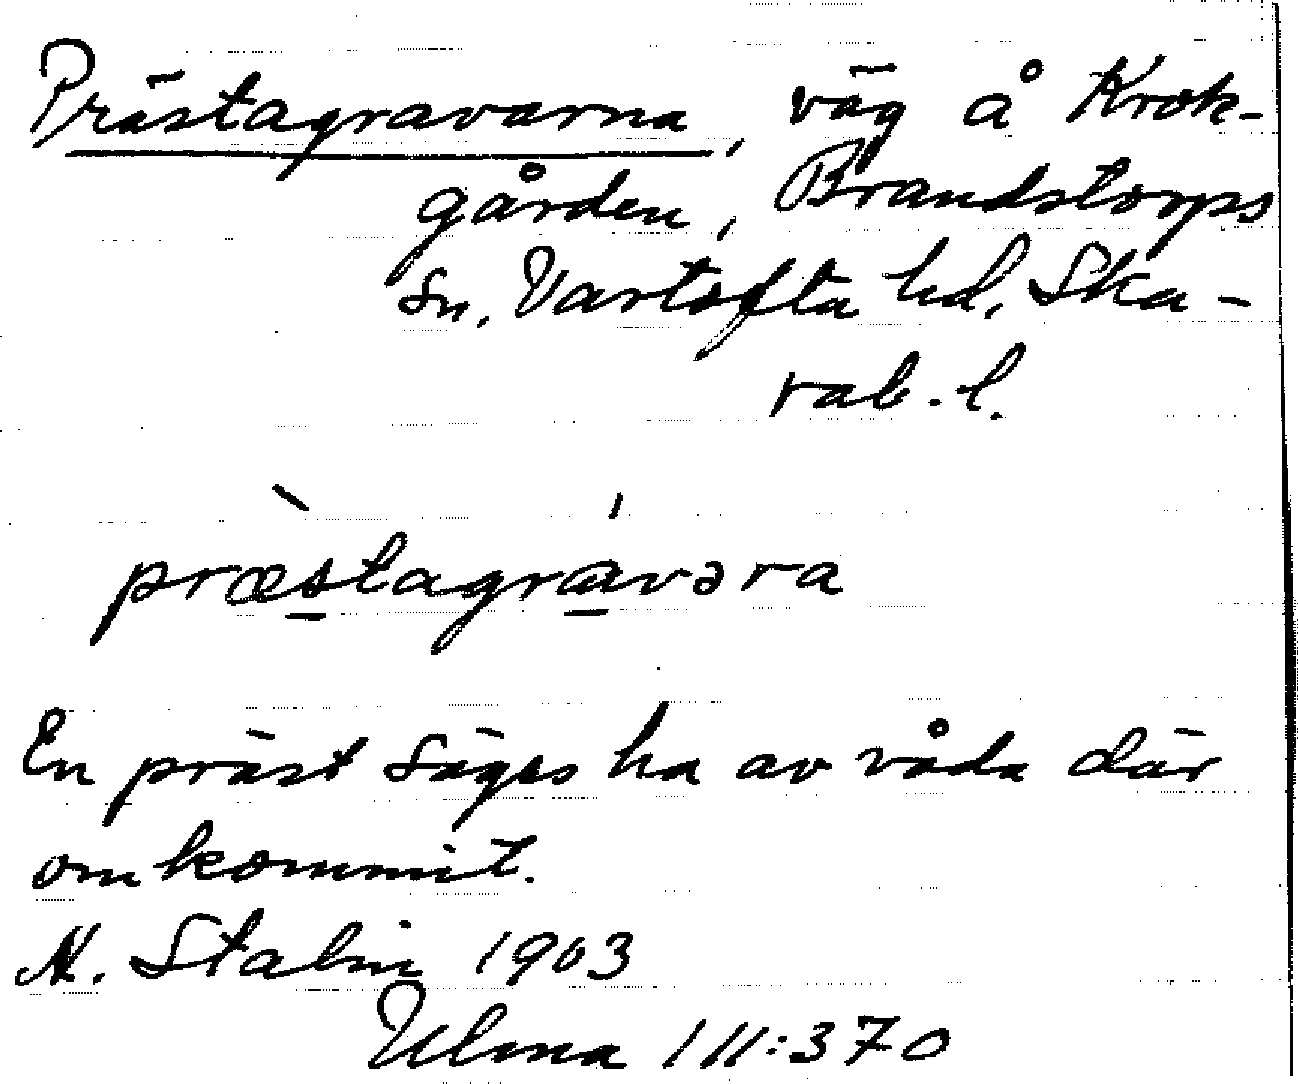 Prästagravarna, väg å Krok-
gården, Brandstorps
sn. Vartofta hd, Ska-
rab. l.
præ̀stagra̱vəra
En präst säges ha av våda där
omkommit.
N. Stalin 1903
Ulma 111:370